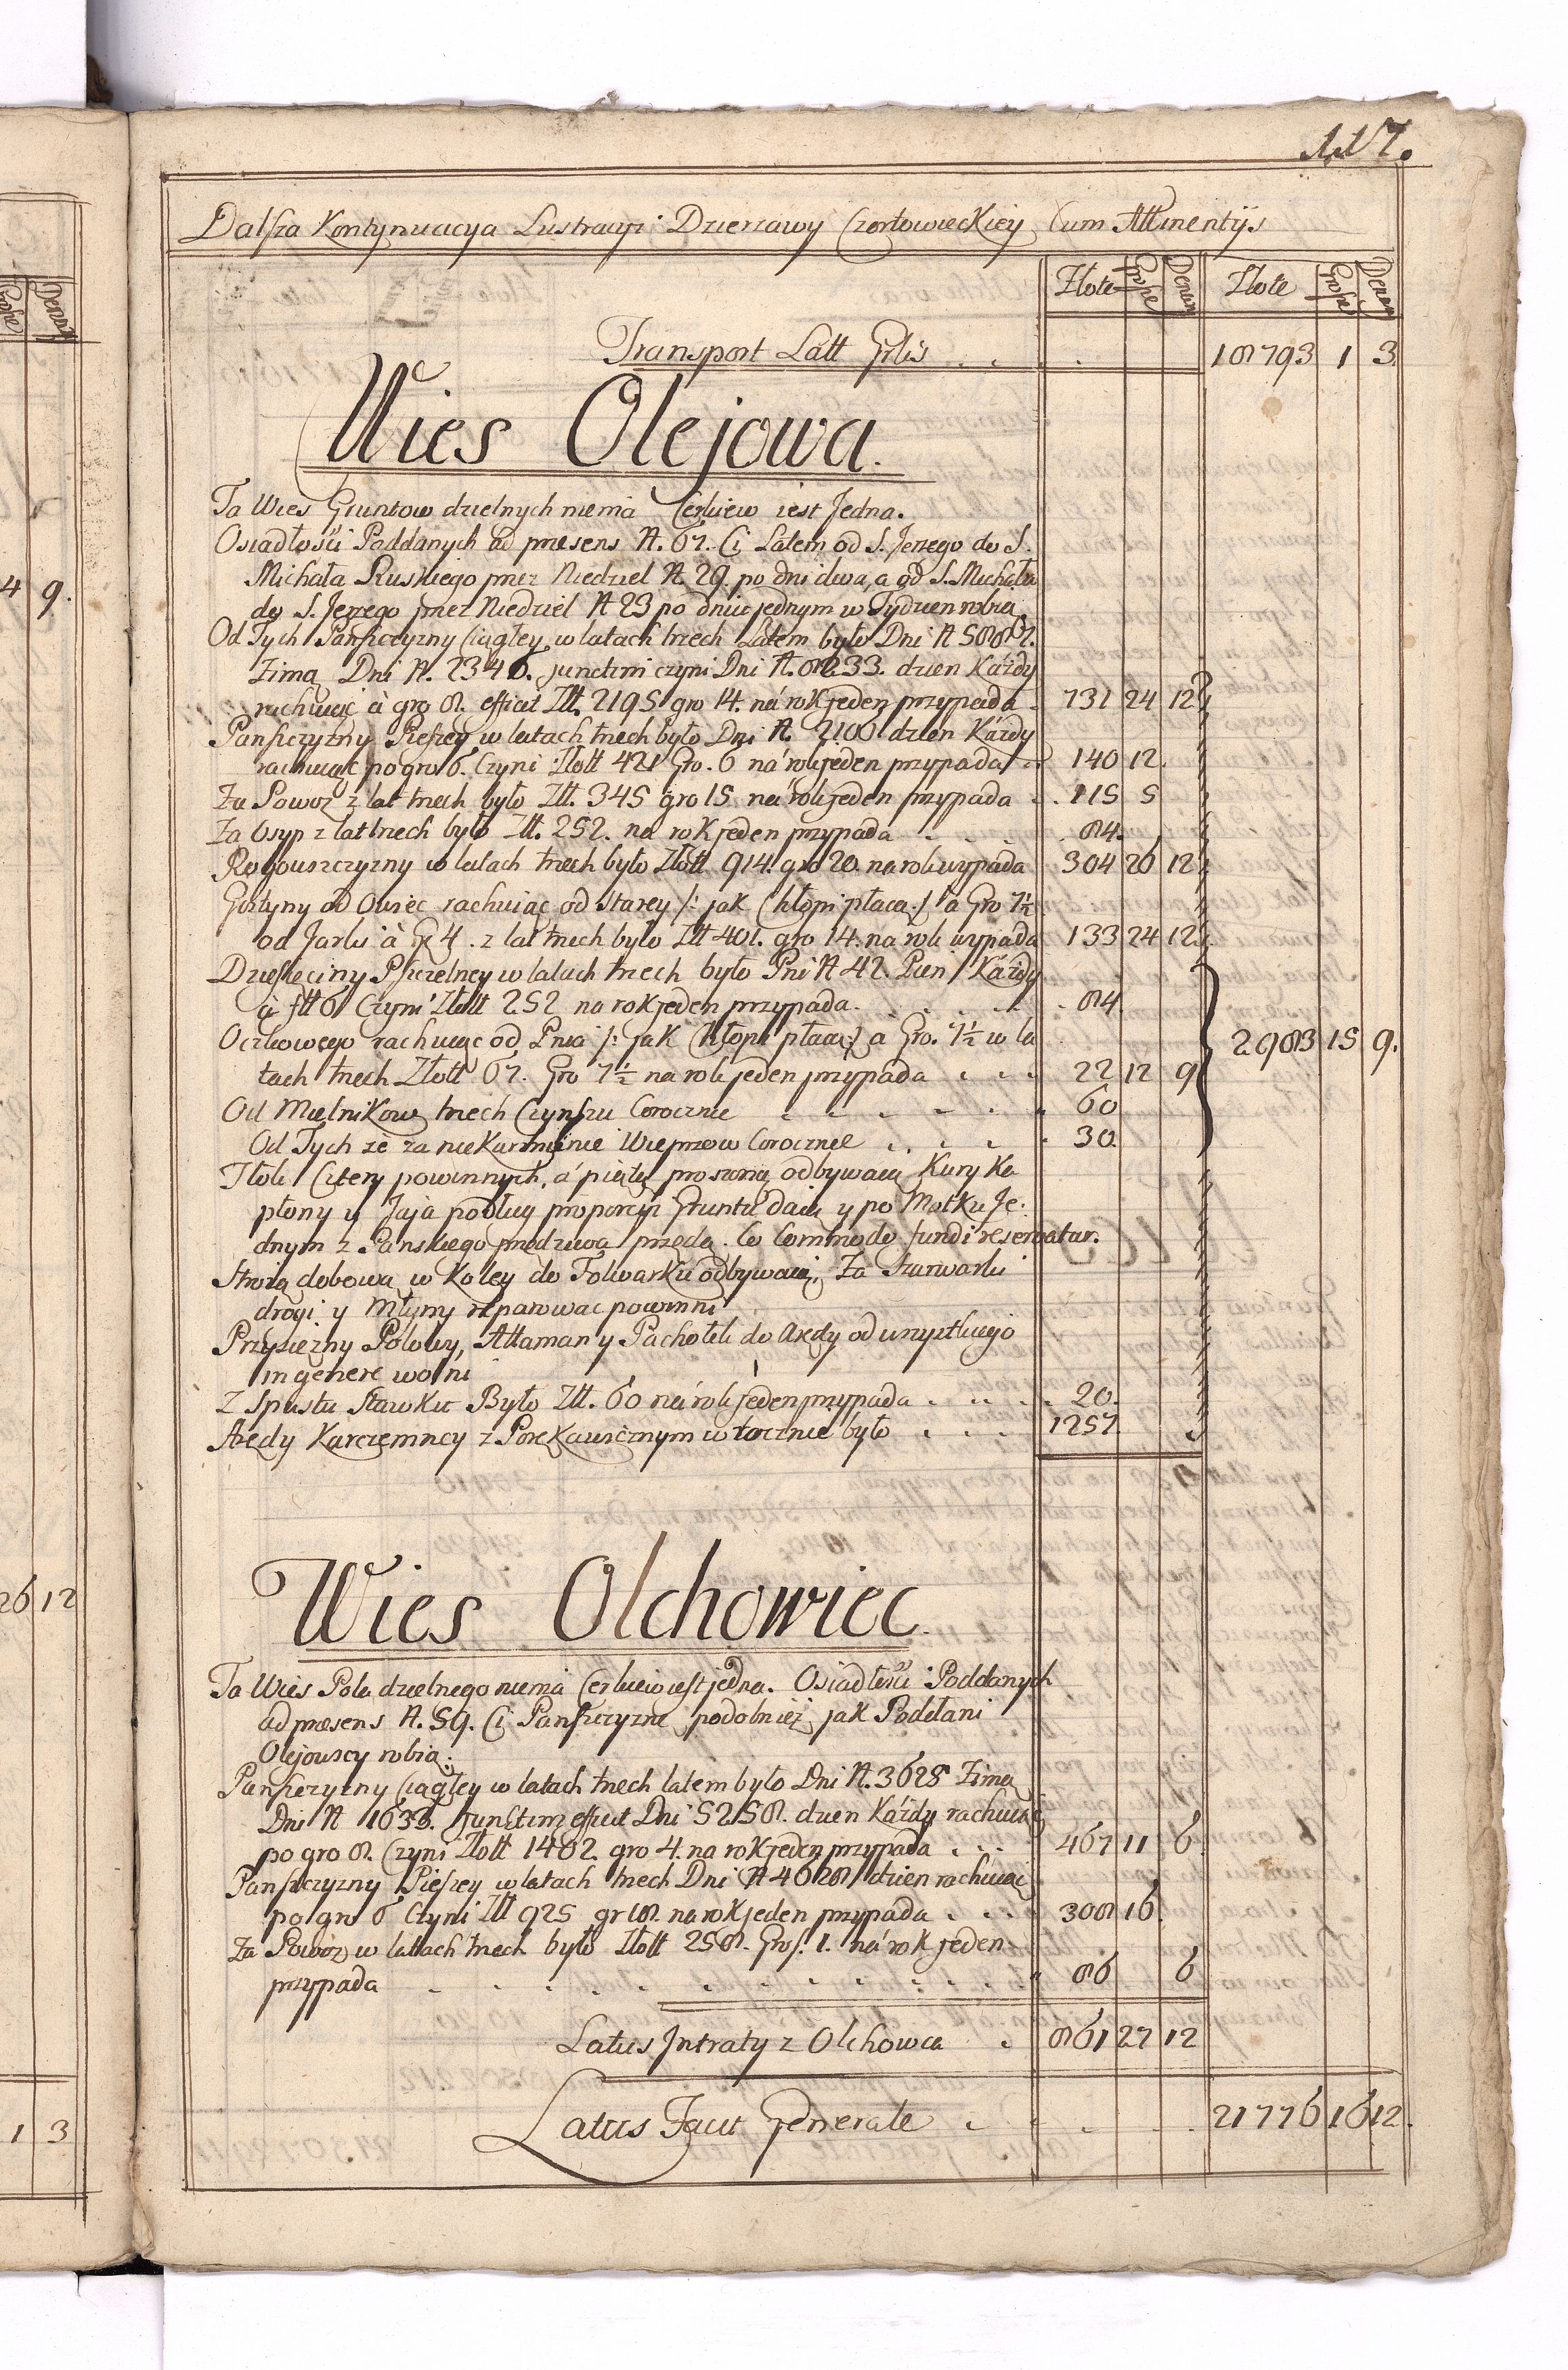 117.
Dalsza Kontynuacya Lustracyi Dzierzawy Czortowieckiey Cum Attinentijs
Złote Grosze Denar Złote Grosze Denar
Transport Latt Grlis 18793 1 3
Wies Olejowa.
Ta Wies Gruntow dzielnych niema Cerkiew iest Jedna.
Osiadłości Poddanych ad præsens N. 67. Ci Latem od S. Jerzego do S.
Michała Ruskiego przez Niedziel N 29. po dni dwa, a od S. Michała
do S. Jerzego przez Niedziel N 23 po dniu jednym w Tydzien robią
Od Tych Panszczyzny Ciągłey w latach trzech Latem było Dni N 5887.
Zimą Dni N. 2346. junctim czyni Dni N. 8233. dzien Każdy
rachuiąc à gro 8. efficit Złt. 2195 gro 14. na rok jeden przypada 731 24 12
Panszczyzny Pieszey w latach trzech było Dni N. 2106 dzien Każdy
rachuiąc po gro 6. Czyni Złott 421 Gro. 6 na rok jeden przypada 140 12.
Za Powoz z lat trzech było Złt. 345 gro 15 na rok jeden przypada 115 5
Za Osyp z lat trzech było Złt. 252. na rok jeden przypada 84.
Rogowszczyzny w latach trzech było Złott 914. gro 20. na rok wypada 304 26 12
Gelżyny od Owiec rachuiąc od starey /: jak Chłopi płacą :/ a Gro 7½
od Jarki à Gr 4. z lat trzech było Złt 401. gro 14. na rok wypada 133 24 12
Dziesięciny Pszczelney w latach trzech było Pni N 42. Pień Każdy
à złt 6 Czyni Złott 252 na rok jeden przypada. 84.
Oczkowego rachuiąc od Pnia /: jak Chłopi płacą :/ a Gro. 7½ w la
tach trzech Złott 67. Gro 7½ na rok jeden przypada 22 12 9
2983 15 9.
Od Mielnikow trzech Czynszu Corocznie 60
Od Tych ze za nie Karmienie Wieprzow Corocznie 30.
Tłoki Cztery powinnych, a piątą proszoną odbywaią Kury Ka
płony y Jaja podług proporcyi Gruntu daią y po Motku Je.
dnym z Panskiego przędziwa przędą. Co Commodo fundi reservatur.
Strożą dobową w Koley do Folwarku odbywaią, Za Szarwarki
drogi y Młyny reparowac powinni
Przysiężny Polowy, Attaman y Pachołek do Arędy od wszystkiego
in genere wolni
Z Spustu Stawku Było Złt. 60 na rok jeden przypada 20.
Arędy Karczemney z Porękawicznym w rocznie było 1257.
Wies Olchowiec.
Ta Wies Pola dzielnego niema Cerkiew iest jedna. Osiadłości Poddanych
ad præsens N. 59. Ci Panszczyznę podobnież jak Poddani
Olejowscy robią.
Panszczyzny Ciągłey w latach trzech latem było Dni N. 3625 Zimą
Dni N 1633. junctim efficit Dni 5258. dzien Każdy rachuiąc
po gro 8. Czyni Złott 1402. gro 4. na rok jeden przypada 467 11 6
Panszczyzny Pieszey w latach trzech Dni N 4628 dzien rachuiąc
po gro 6 Czyni Złt 925 gr 18. na rok jeden przypada 308 16
Za Powoz w latach trzech było Złott 258. Gros. 1. na rok jeden
przypada 86 6
Latus Intraty z Olchowca 861 27 12
Latus Facit Generale 21776 16 12.